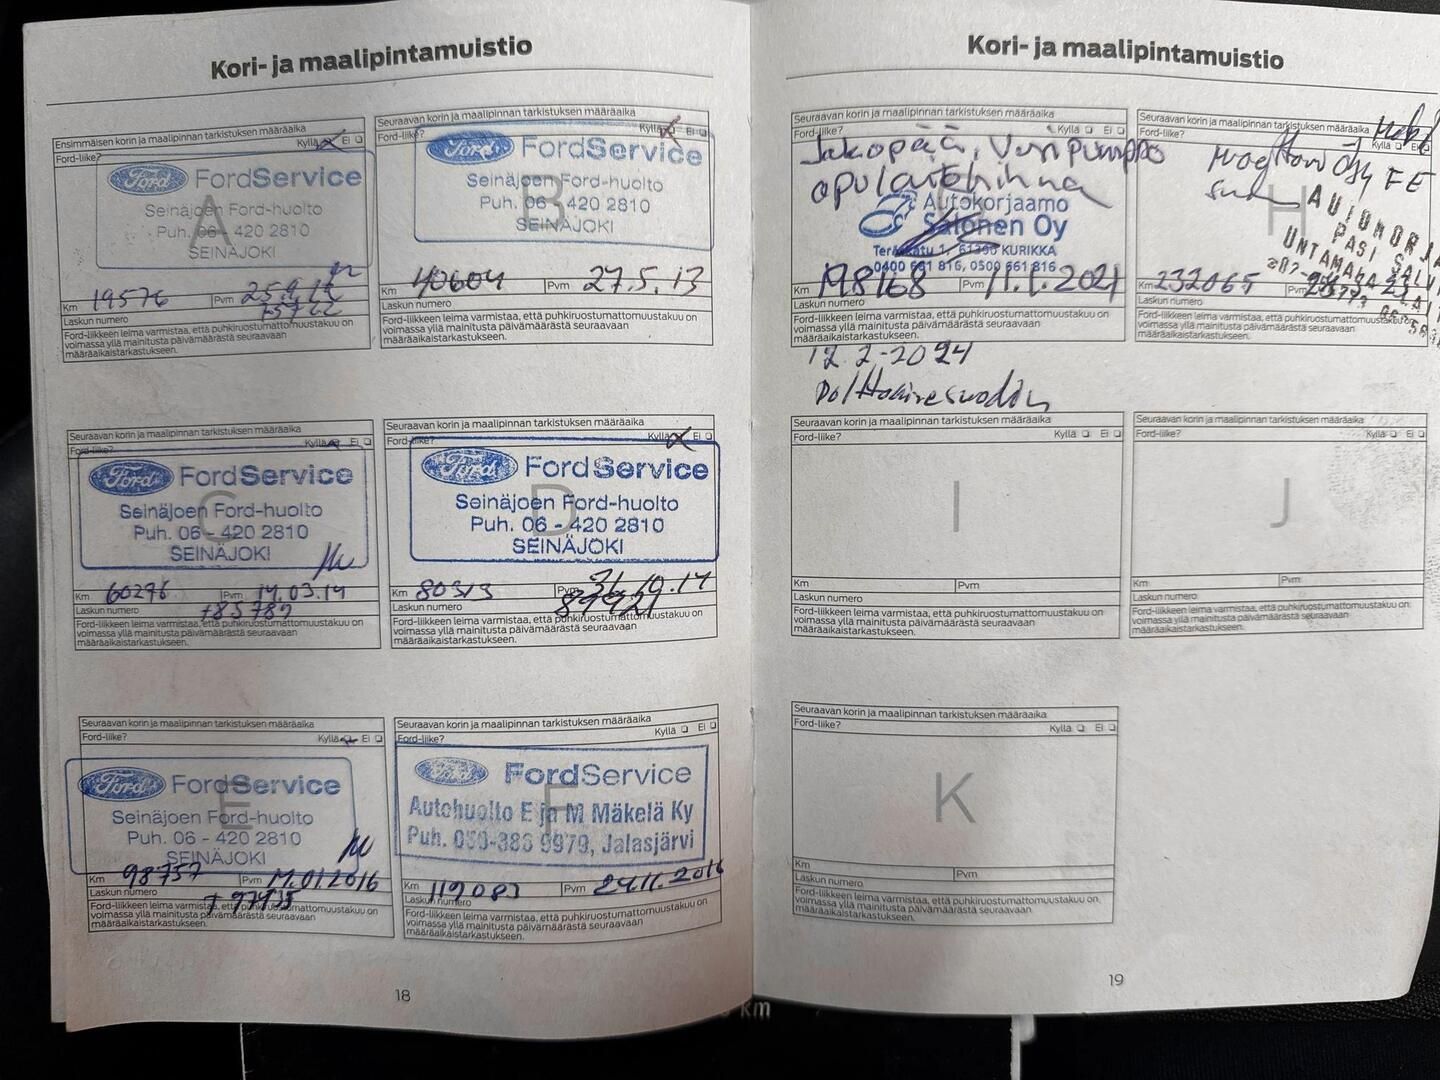 Kori- ja maalipintamuistio
Ensimmäisen korin ja maalipinnan tarkistuksen määräaika
Ford-liike? Kyllä Ei
Ford FordService
A
Seinäjoen Ford-huolto
Puh. 06 - 420 2810
SEINÄJOKI
Km 19576 Pvm
Laskun numero
Ford-liikkeen leima varmistaa, että puhkiruostumattomuustakuu on
voimassa yllä mainitusta päivämäärästä seuraavaan
määräaikaistarkastukseen.
Seuraavan korin ja maalipinnan tarkistuksen määräaika
Ford-liike? Kyllä Ei
Ford FordService
B
Seinäjoen Ford-huolto
Puh. 06 - 420 2810
SEINÄJOKI
Km 40604 Pvm 27.5.13
Laskun numero
Ford-liikkeen leima varmistaa, että puhkiruostumattomuustakuu on
voimassa yllä mainitusta päivämäärästä seuraavaan
määräaikaistarkastukseen.
Seuraavan korin ja maalipinnan tarkistuksen määräaika
Ford-liike? Kyllä Ei
Ford FordService
C
Seinäjoen Ford-huolto
Puh. 06 - 420 2810
SEINÄJOKI
Km 60276 Pvm 14.03.14
Laskun numero +85789
Ford-liikkeen leima varmistaa, että puhkiruostumattomuustakuu on
voimassa yllä mainitusta päivämäärästä seuraavaan
määräaikaistarkastukseen.
Seuraavan korin ja maalipinnan tarkistuksen määräaika
Ford-liike? Kyllä Ei
Ford FordService
D
Seinäjoen Ford-huolto
Puh. 06 - 420 2810
SEINÄJOKI
Km 80313 Pvm 31.10.14
Laskun numero
Ford-liikkeen leima varmistaa, että puhkiruostumattomuustakuu on
voimassa yllä mainitusta päivämäärästä seuraavaan
määräaikaistarkastukseen.
Seuraavan korin ja maalipinnan tarkistuksen määräaika
Ford-liike? Kyllä Ei
Ford FordService
E
Seinäjoen Ford-huolto
Puh. 06 - 420 2810
SEINÄJOKI
Km 98757 Pvm
Laskun numero
Ford-liikkeen leima varmistaa, että puhkiruostumattomuustakuu on
voimassa yllä mainitusta päivämäärästä seuraavaan
määräaikaistarkastukseen.
Seuraavan korin ja maalipinnan tarkistuksen määräaika
Ford-liike? Kyllä Ei
Ford FordService
F
Autohuolto E ja M Mäkelä Ky
Puh. 050-386 9979, Jalasjärvi
Km 119083 Pvm 24.11.2016
Laskun numero
Ford-liikkeen leima varmistaa, että puhkiruostumattomuustakuu on
voimassa yllä mainitusta päivämäärästä seuraavaan
määräaikaistarkastukseen.
18
Kori- ja maalipintamuistio
Seuraavan korin ja maalipinnan tarkistuksen määräaika
Ford-liike? Kyllä Ei
Jakopää, Vesipumppu
apulaitehihna
Autokorjaamo
Salonen Oy
61360 KURIKKA
0400 661 816, 0500 661 816
Km 198168 Pvm 11.1.2021
Laskun numero
Ford-liikkeen leima varmistaa, että puhkiruostumattomuustakuu on
voimassa yllä mainitusta päivämäärästä seuraavaan
määräaikaistarkastukseen.
12.2-2024
Polttoainesuodin
Seuraavan korin ja maalipinnan tarkistuksen määräaika
Ford-liike? Kyllä Ei
H
PASI
Km 232065 Pvm
Laskun numero
Ford-liikkeen leima varmistaa, että puhkiruostumattomuustakuu on
voimassa yllä mainitusta päivämäärästä seuraavaan
määräaikaistarkastukseen.
Seuraavan korin ja maalipinnan tarkistuksen määräaika
Ford-liike? Kyllä Ei
I
Km Pvm
Laskun numero
Ford-liikkeen leima varmistaa, että puhkiruostumattomuustakuu on
voimassa yllä mainitusta päivämäärästä seuraavaan
määräaikaistarkastukseen.
Seuraavan korin ja maalipinnan tarkistuksen määräaika
Ford-liike? Kyllä Ei
J
Km Pvm
Laskun numero
Ford-liikkeen leima varmistaa, että puhkiruostumattomuustakuu on
voimassa yllä mainitusta päivämäärästä seuraavaan
määräaikaistarkastukseen.
Seuraavan korin ja maalipinnan tarkistuksen määräaika
Ford-liike? Kyllä Ei
K
Km Pvm
Laskun numero
Ford-liikkeen leima varmistaa, että puhkiruostumattomuustakuu on
voimassa yllä mainitusta päivämäärästä seuraavaan
määräaikaistarkastukseen.
19
km